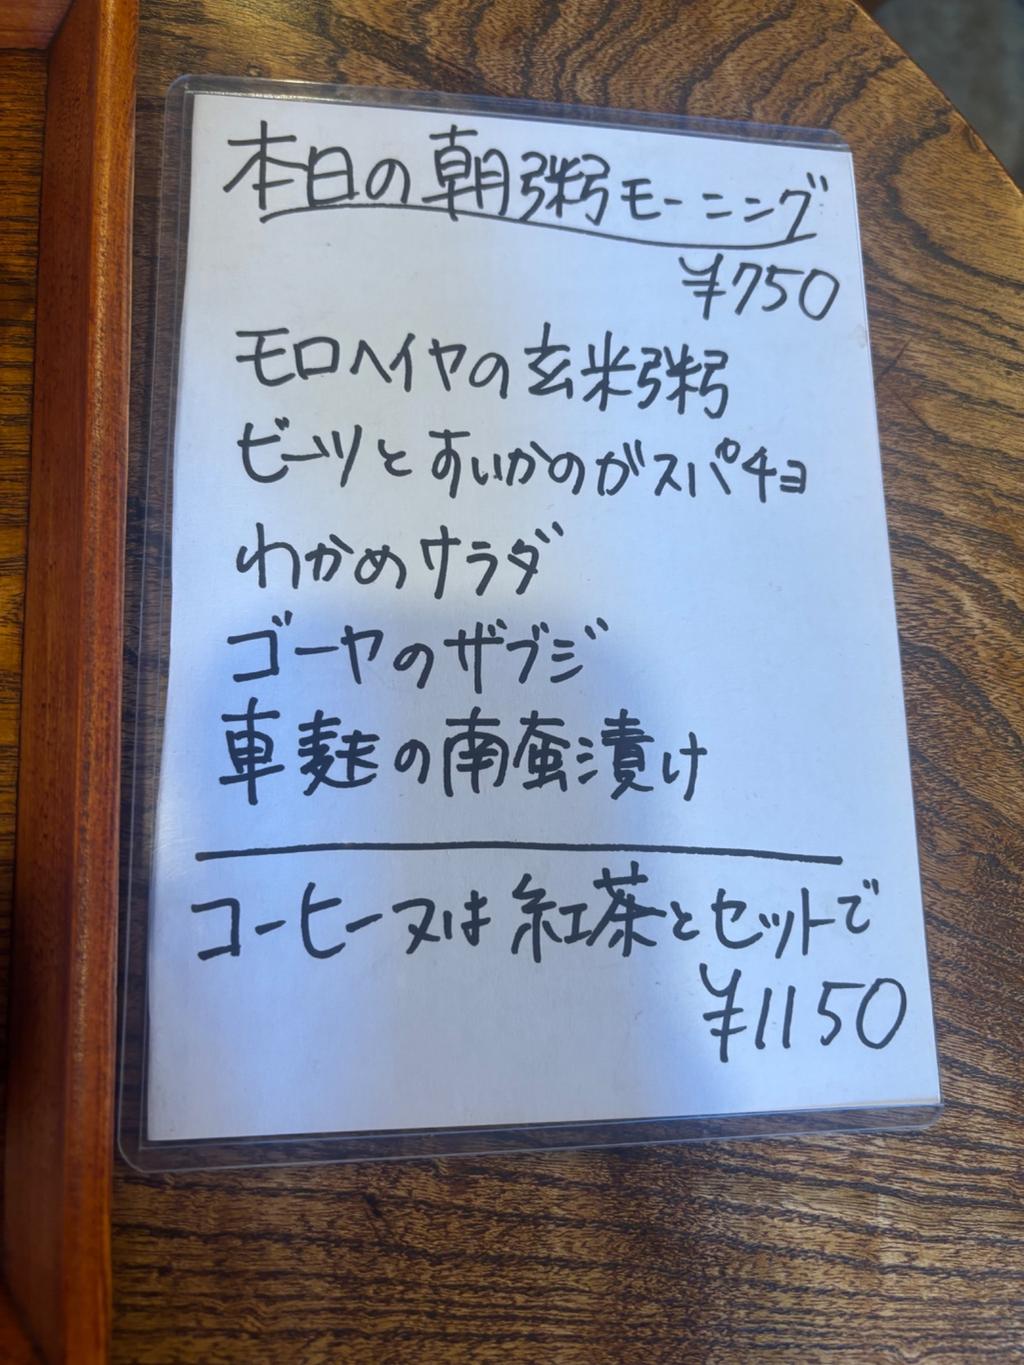 本日の朝粥モーニング
¥750
モロヘイヤの玄米粥
ビーツとすいかのがスパチョ
わかめサラダ
ゴーヤのサブジ
車麩の南蛮漬け
コーヒーヌは紅茶とセットで
¥1150